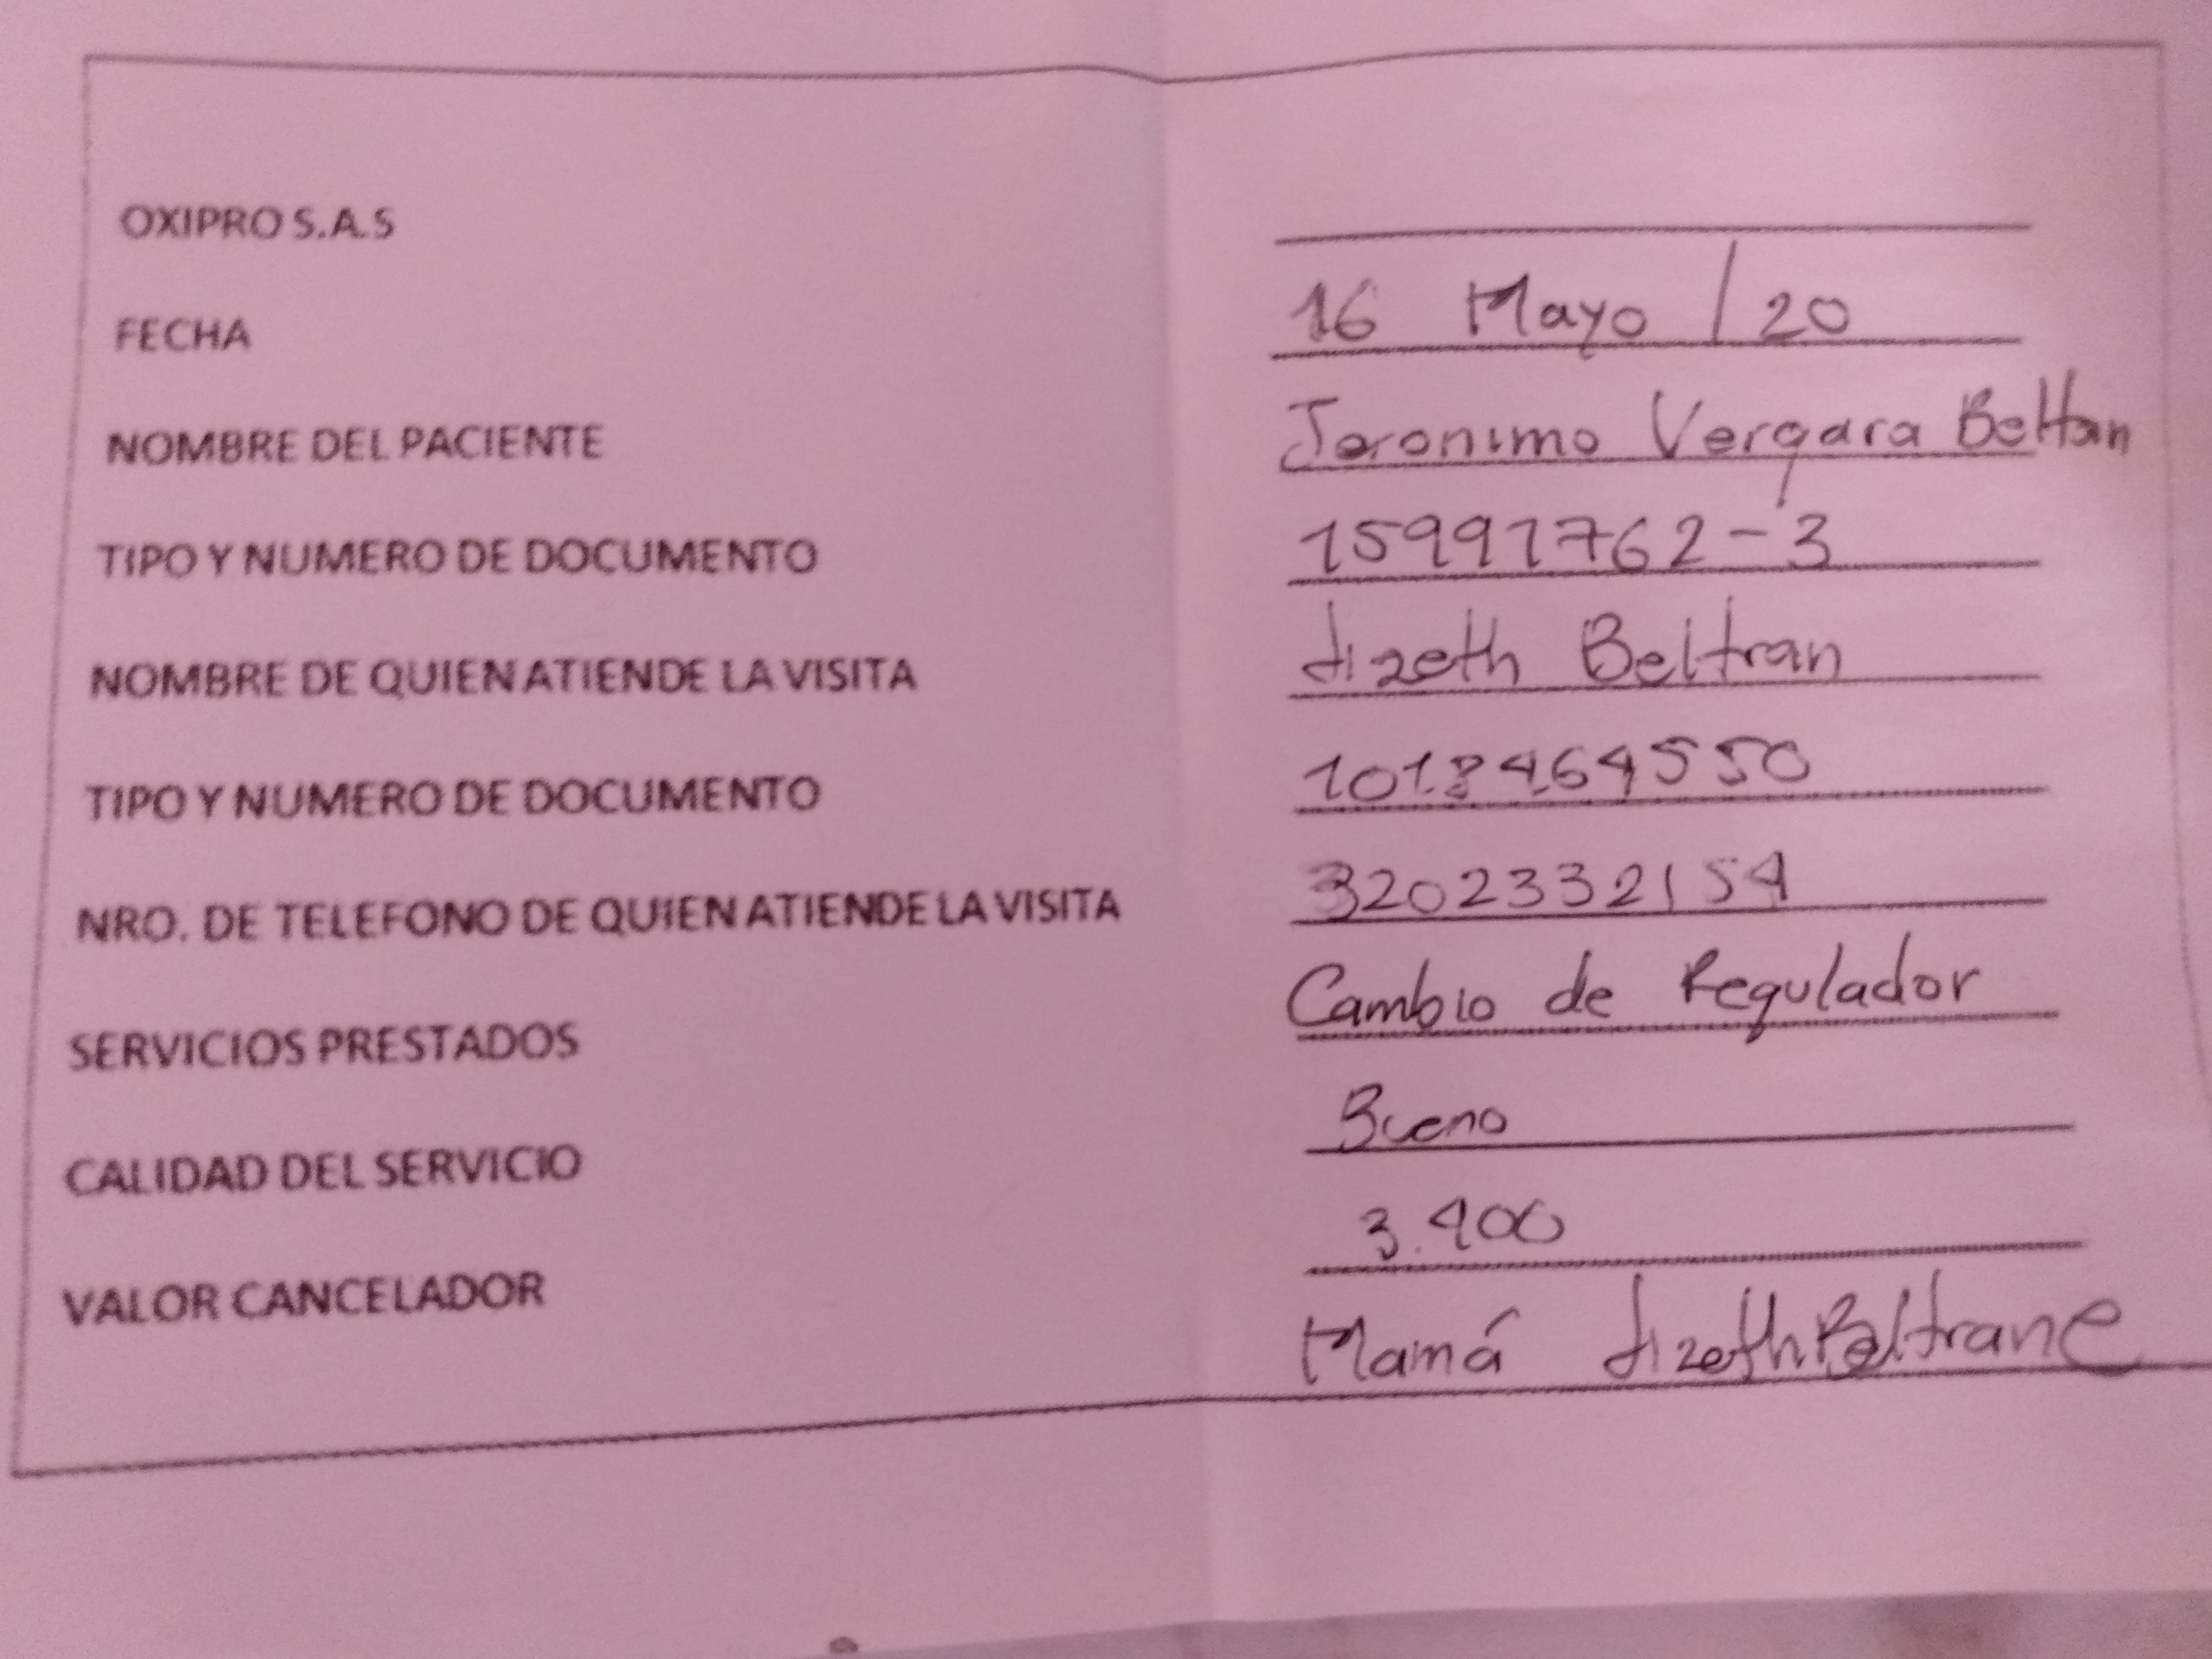 OXIPRO S.A.S
FECHA 16 Mayo / 20
NOMBRE DEL PACIENTE Jeronimo Vergara Beltran
TIPO Y NUMERO DE DOCUMENTO 15991762-3
NOMBRE DE QUIEN ATIENDE LA VISITA Lizeth Beltran
TIPO Y NUMERO DE DOCUMENTO 1018464550
NRO. DE TELEFONO DE QUIEN ATIENDE LA VISITA 3202332154
SERVICIOS PRESTADOS Cambio de Regulador
CALIDAD DEL SERVICIO Bueno
VALOR CANCELADOR 3.400
Mamá Lizeth Beltran